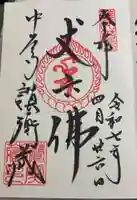 奉拝
令和七年
四月廿六日
丈六佛
中尊寺讃衡蔵